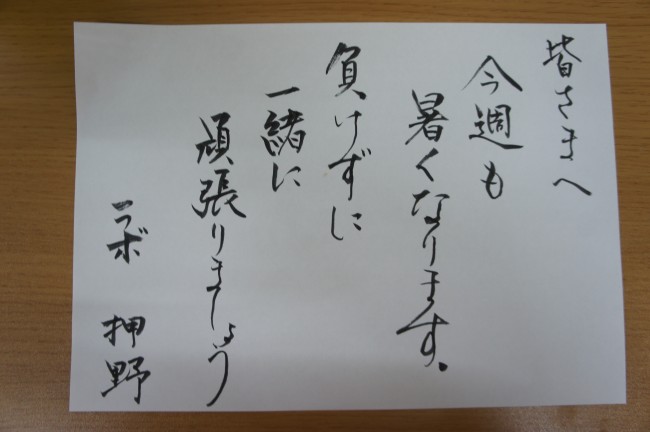 皆さまへ
今週も
暑くなります。
負けずに
一緒に
頑張りましょう
ラボ 押野